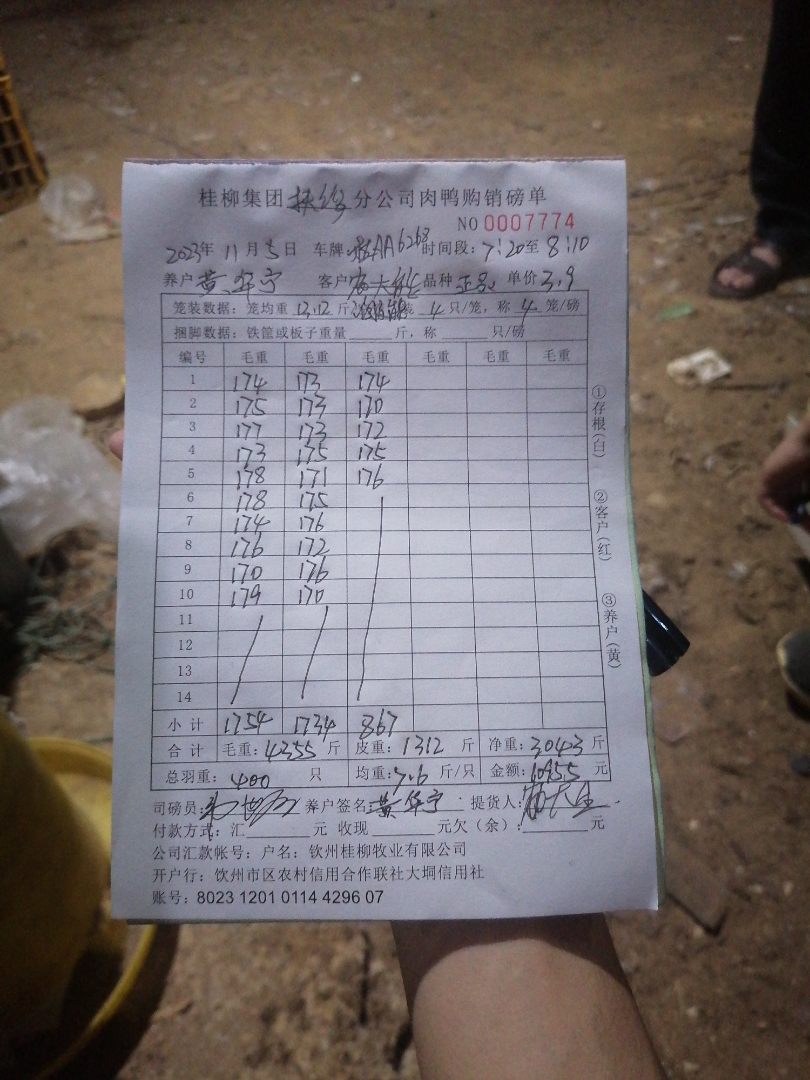 桂柳集团扶绥分公司肉鸭购销磅单
NO 0007774
2023年 11月5日 车牌: AA6268 时间段: 7:20至 8:10
养户 黄华宁 客户 品种 单价 3.9
笼装数据: 笼均重 13.12 斤, 装 4 只/笼, 称 4 笼/磅
捆脚数据: 铁筐或板子重量 斤, 称 只/磅
编号 毛重 毛重 毛重 毛重 毛重 毛重
1 174 173 174
2 175 173 170
3 177 173 172
4 173 175 175
5 178 171 176
6 178 175
7 174 176
8 176 172
9 170 176
10 179 170
11
12
13
14
小计 1754 1734 867
合计 毛重: 4355 斤 皮重: 1312 斤 净重: 3043 斤
总羽重: 400 只 均重: 7.6 斤/只 金额: 10955 元
司磅员: 养户签名: 黄华宁 提货人:
付款方式: 汇 元 收现 元欠(余): 元
公司汇款帐号: 户名: 钦州桂柳牧业有限公司
开户行: 钦州市区农村信用合作联社大垌信用社
账号: 8023 1201 0114 4296 07
①存根(白)
②客户(红)
③养户(黄)